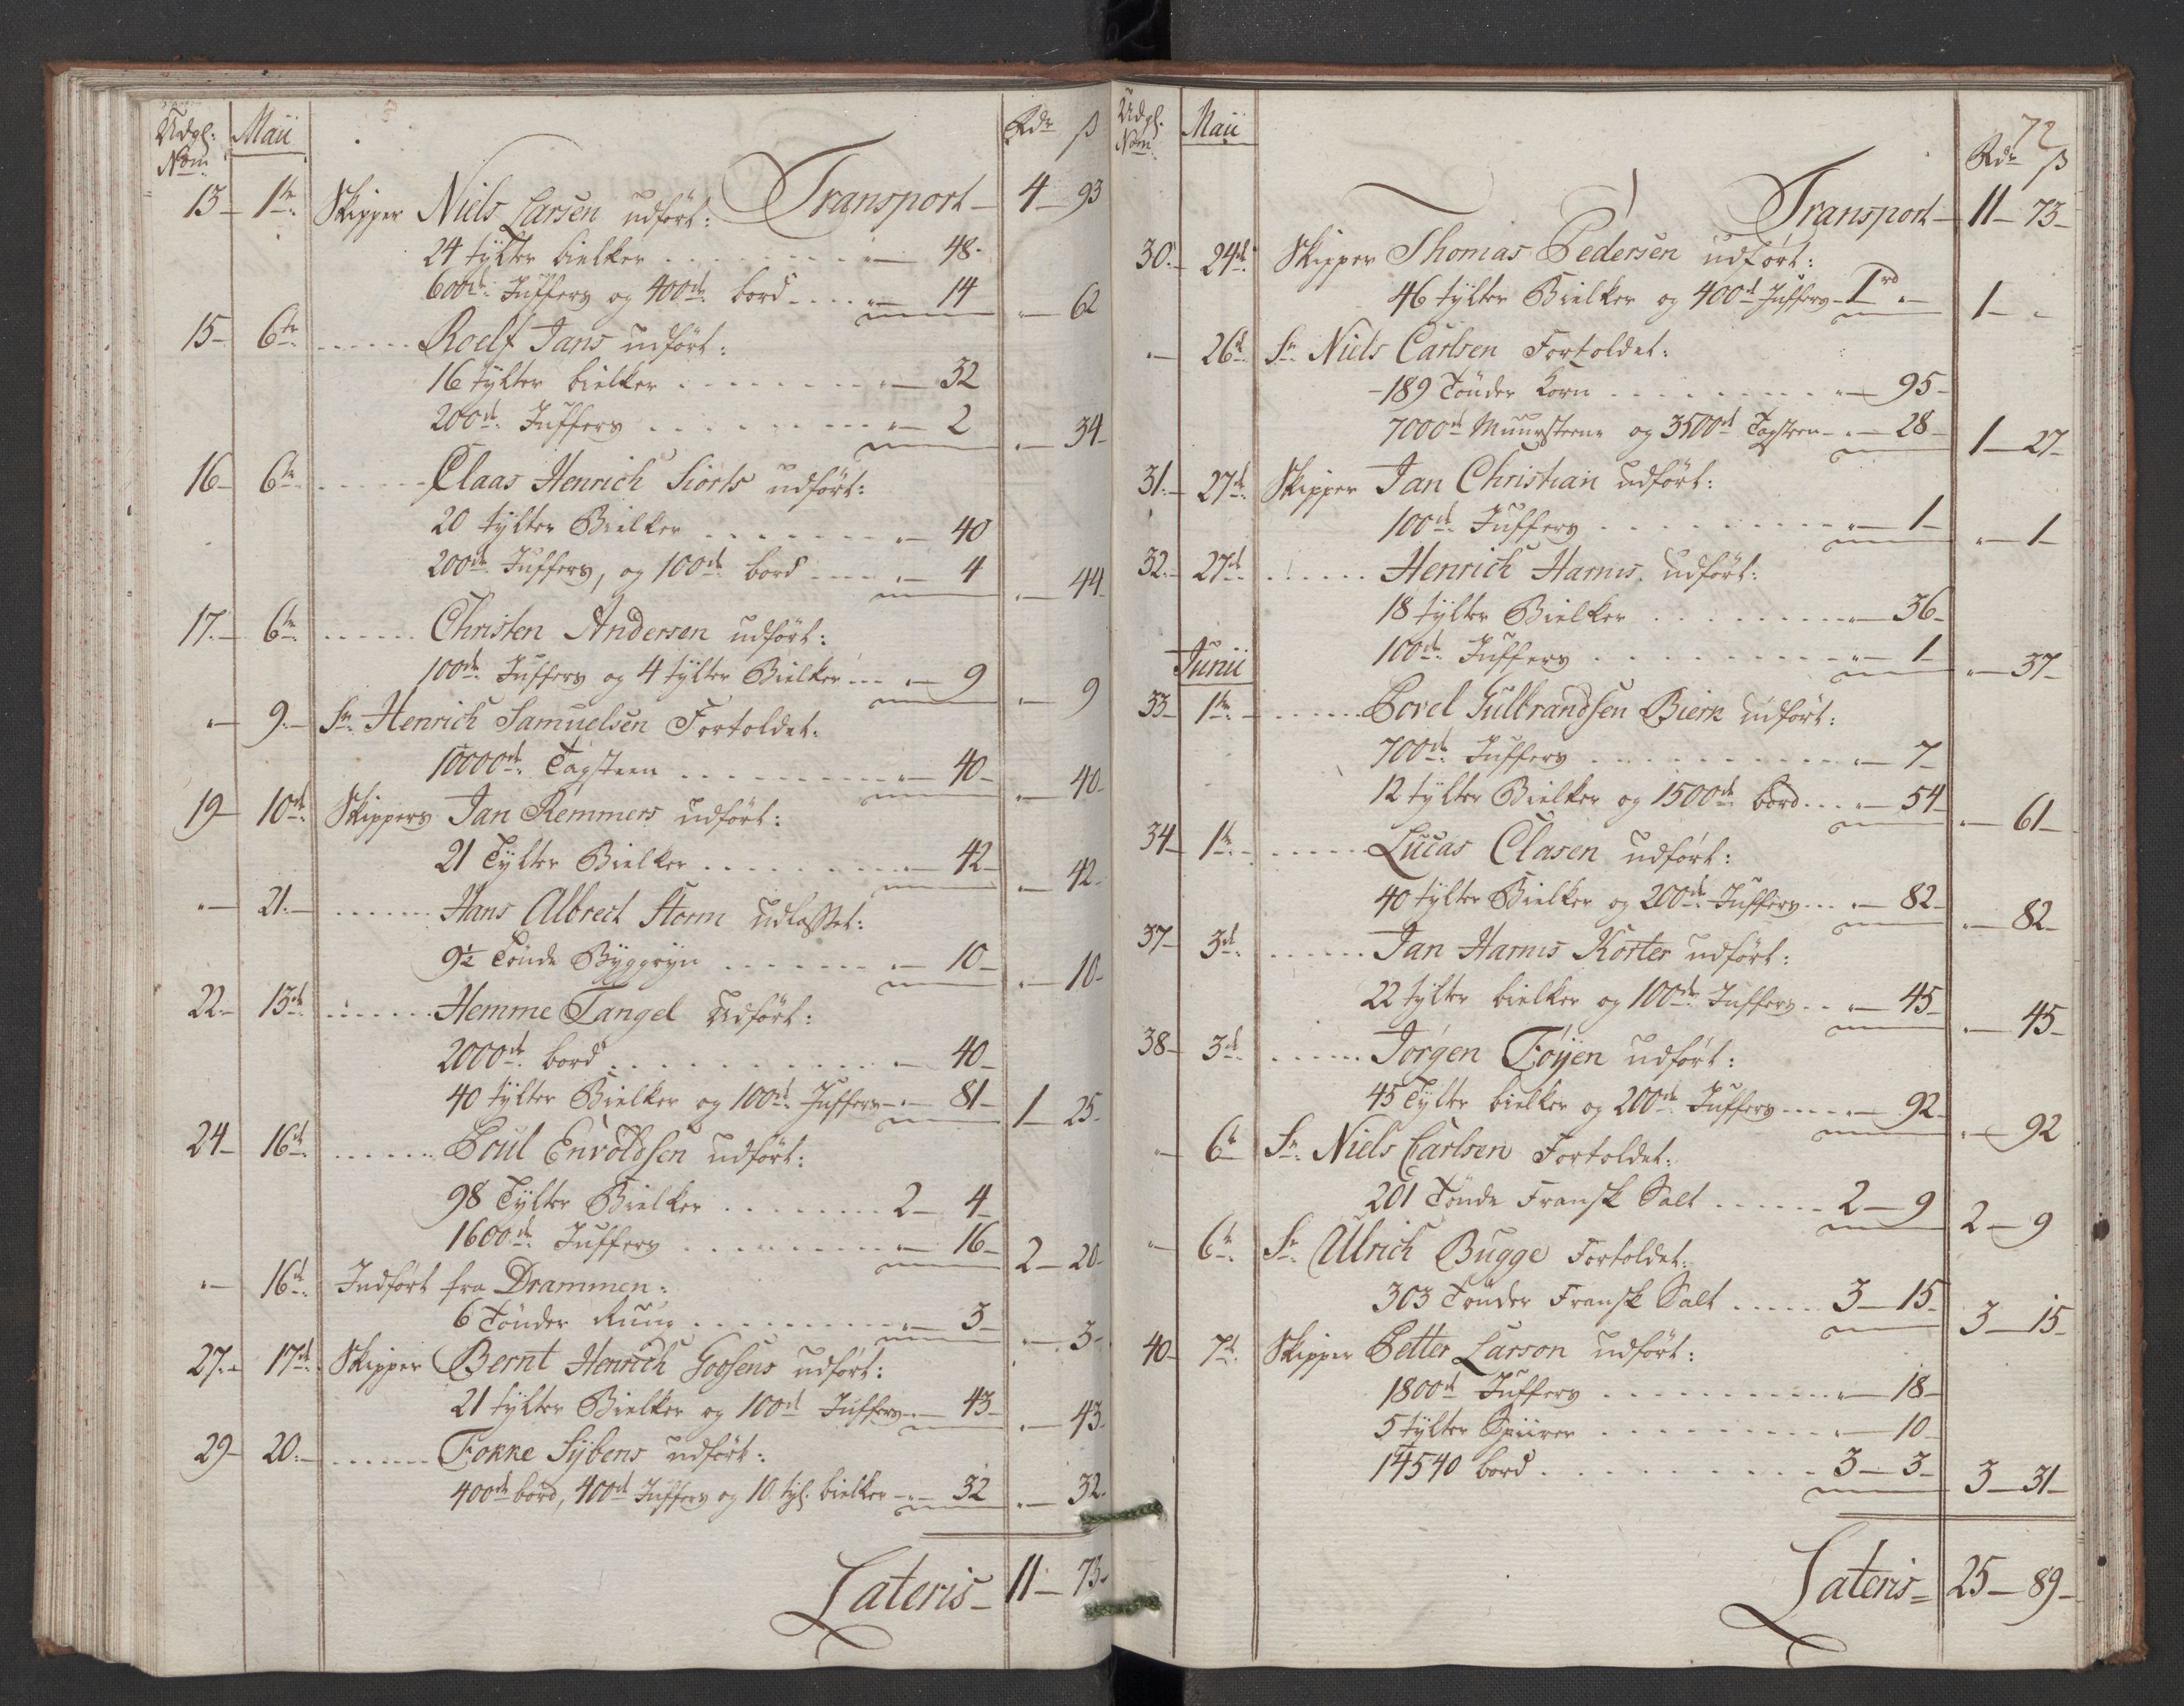 Udgl: Maii Rdr ß
Nom:
Transport 4 93
13 1te Skipper Niels Larsen udført:
24 tylter bielker 48
600de Juffers og 400de bord 14 62
15 6te Roelf Jans udført:
16 tylter bielker 32
200de Juffers 2 34
16 6te Claas Henrich Siorts udført:
20 tylter Bielker 40
200de Juffers, og 100de bord 4 44
17 6te Christen Andersen udført:
100de Juffers og 4 tylter Bielker 9 9
9 Sr Henrich Samuelsen Fortoldet:
10000de Tagsteen 40 40
19 10de Skippers Jan Remmers udført:
21 Tylter Bielker 42 42
21 Hans Albrect Storm udlosset:
9½ Tönde Byggryn 10 10
22 13de Hemme Tangel Udført:
2000de bord 40
40 tylter Bielker og 100de Juffers 81 1 25
24 16de Poul Envoldsen udført:
98 Tylter Bielker 2 4
1600de Juffers 16 2 20
16de Indført fra Drammen:
6 Tönder 3 3
27 17de Skipper Bernt Henrich Goosens udført:
21 tylter Bielker og 100de Juffers 43 43
29 20 Fokke Sybens udført:
400de bord, 400de Juffers og 10 tyl. bielker 32 32
Lateris 11 73
72
Udgl: Maii Rdr ß
Nom:
Transport 11 73
30 24de Skipper Thomas Pedersen udført:
46 tylter Bielker og 400de Juffers 1rd 1
26de Sr Niels Carlsen Fortoldet:
189 Tönder Korn 95
7000de Muursteene og 3500de Tagsteen 28 1 27
31 27de Skipper Jan Christian udført:
100de Juffers 1 1
32 27de Henrich Harms udført:
18 tylter Bielker 36
100de Juffers 1 37
Junii
33 1te Povel Gulbrandsen Bierk udført:
700de Juffers 7
12 tylter Bielker og 1500de bord 54 61
34 1te Lucas Clasen udført:
40 tylter Bielker og 200de Juffers 82 82
37 3de Jan Harms Korter udført:
22 tylter bielker og 100de Juffers 45 45
38 3de Jörgen Föyen udført:
45 Tylter bielker og 200de Juffers 92 92
6te Sr Niels Carlsen Fortoldet:
201 Tönde Fransk Salt 2 9 2 9
6te Sr Ulrich Bugge Fortoldet:
303 Tönder Fransk Salt 3 15 3 15
40 7de Skipper Petter Larson udført:
1800de Juffers 18
5 tylter Spiirer 10
14540 bord 3 3 3 31
Lateris 25 89